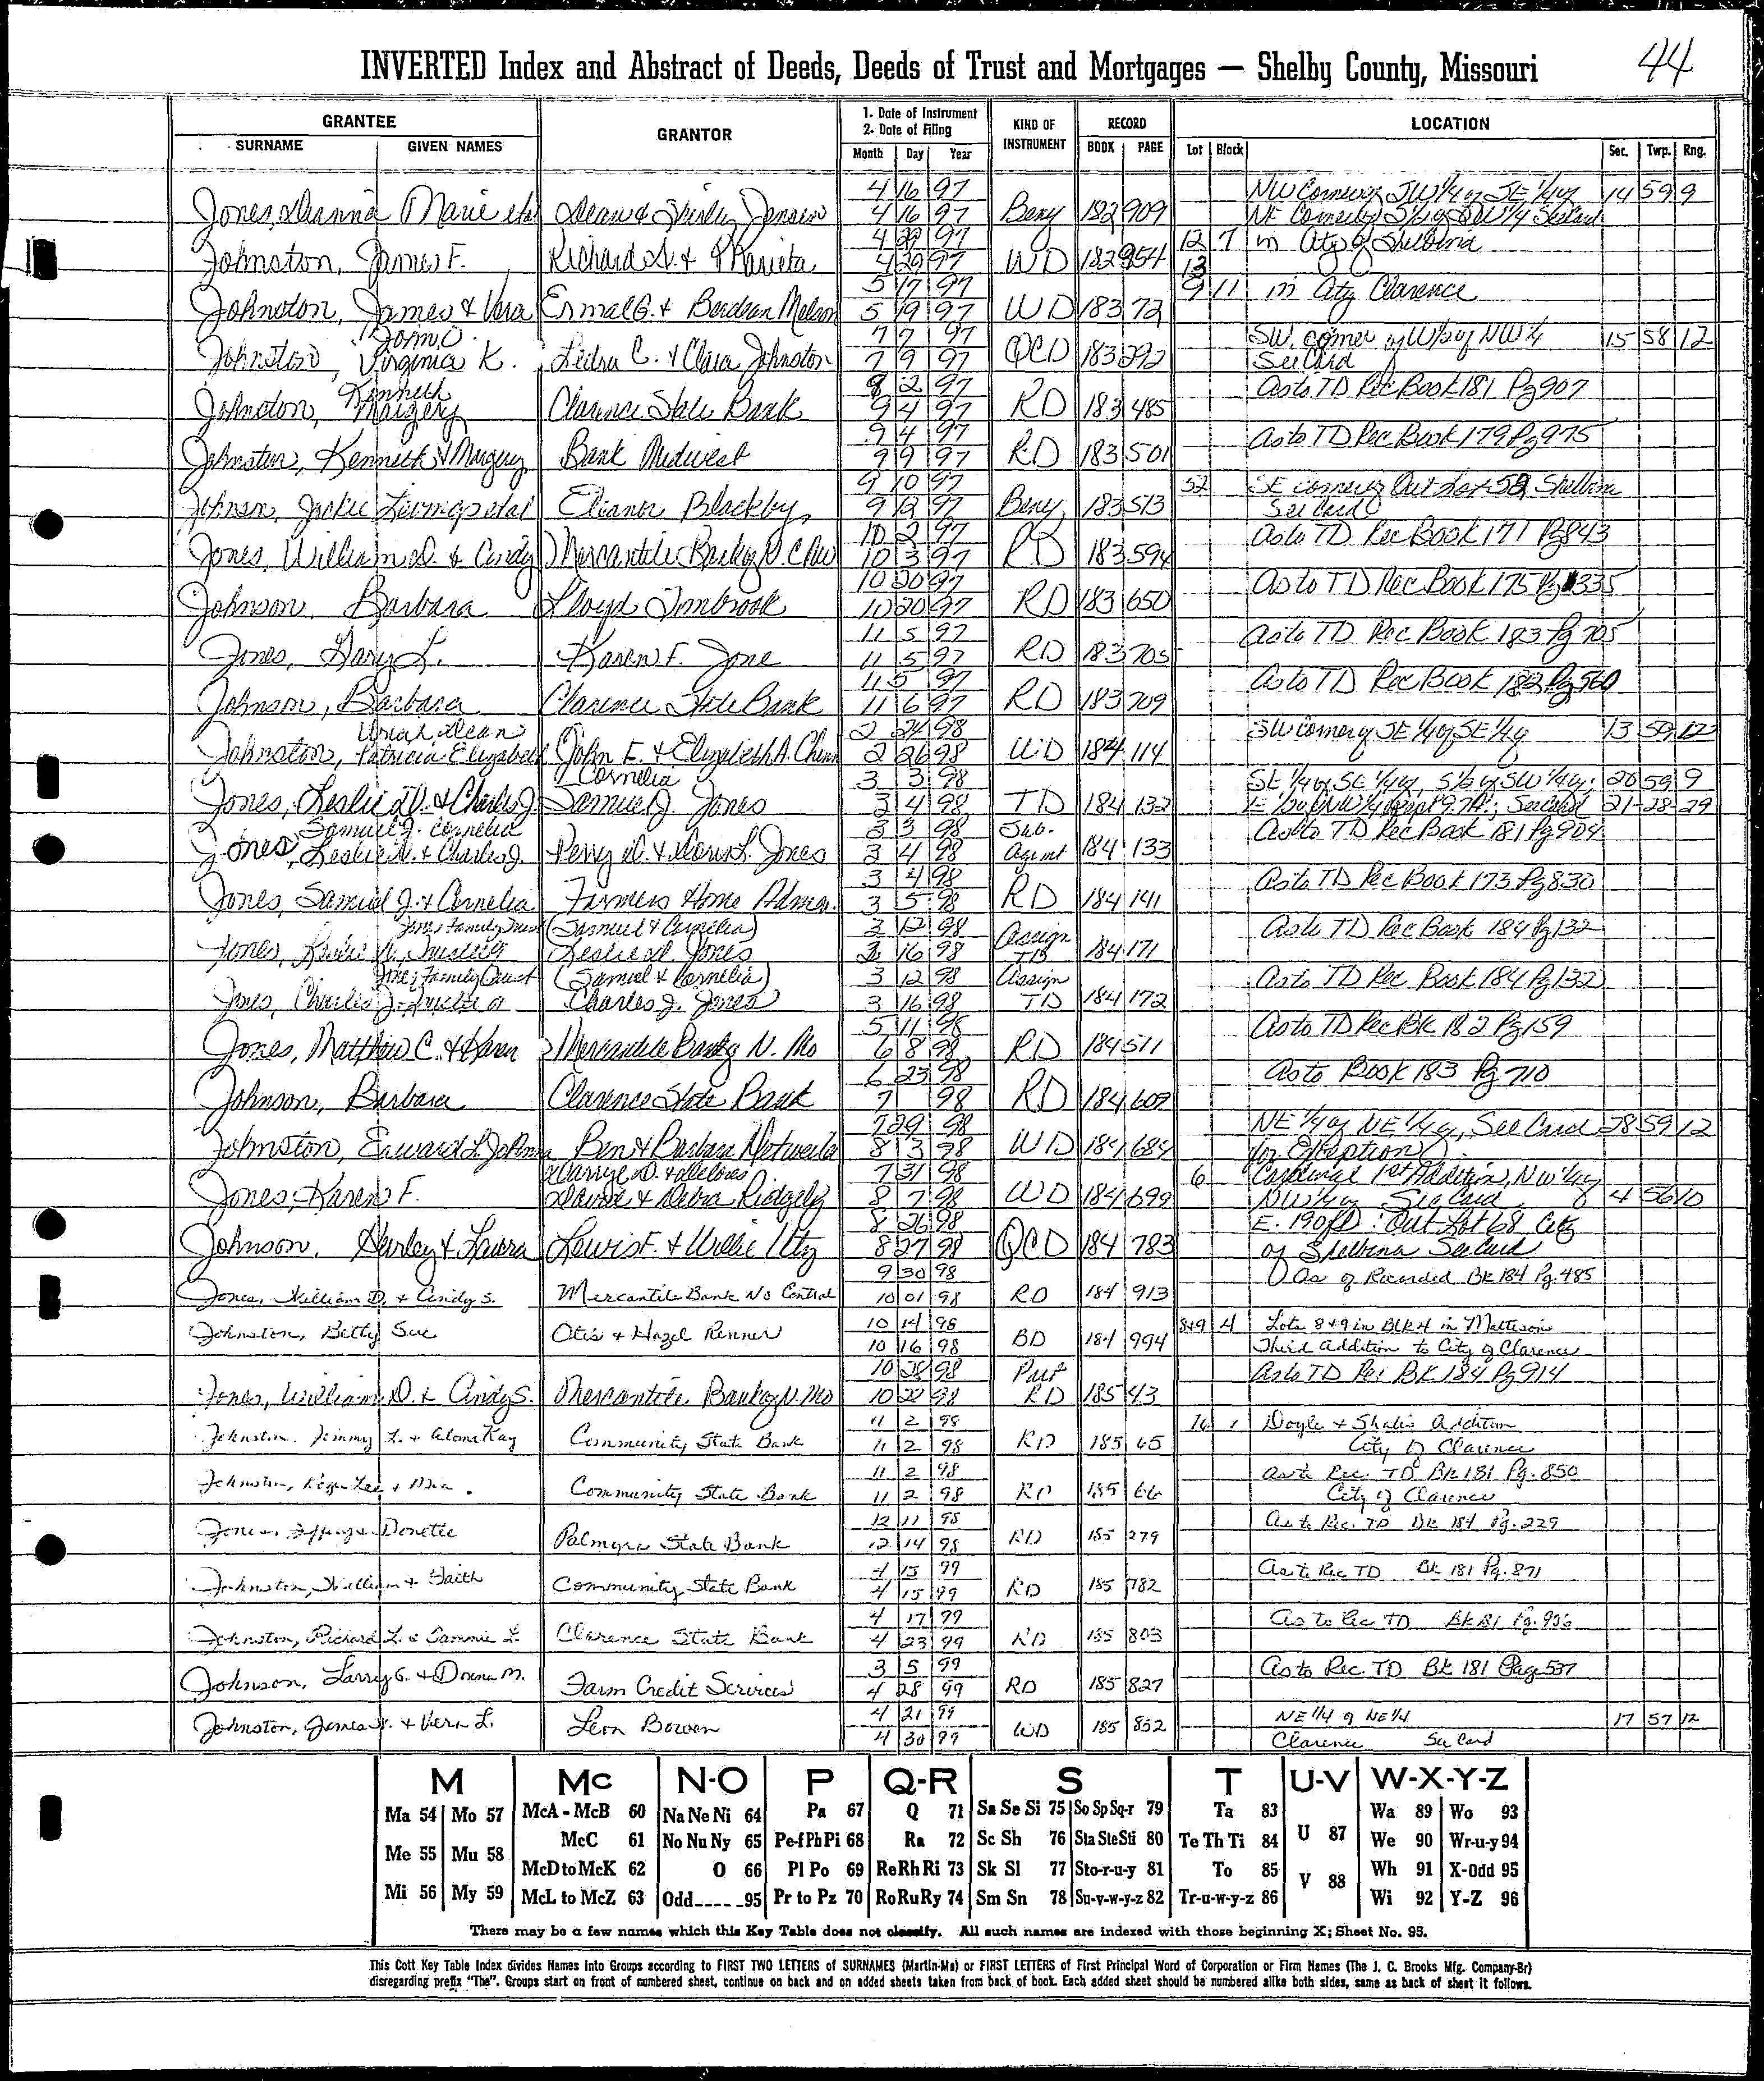 44
INVERTED Index and Abstract of Deeds, Deeds of Trust and Mortgages — Shelby County, Missouri
GRANTEE SURNAME GIVEN NAMES GRANTOR 1. Date of Instrument 2. Date of Filing Month Day Year KIND OF INSTRUMENT RECORD BOOK PAGE Lot Block LOCATION Sec. Twp. Rng.
4 16 97 NW Corner of SW 1/4 of SE 1/4 of 14 59 9
Jones, Dianna Marie etal Dean & Shirley Jensen 4 16 97 Beny 182 909 NE Corner of S 1/2 of SW 1/4 See Card
4 29 97 12 7 in City of Shelbina
Johnston, James F. Richard L. & Marieta 4 29 97 WD 182 954 13
5 17 97 9 11 in City Clarence
Johnston, James & Vera Ermal G. & Bardean Melson 5 19 97 WD 183 72
John O. 7 7 97 SW. corner of W 1/2 of NW 1/4 15 58 12
Johnston, Virginia K. Ledra C. & Clara Johnston 7 9 97 QCD 183 292 See Card
Kenneth 9 2 97 As to TD Rec Book 181 Pg 907
Johnston, Margery Clarence State Bank 9 4 97 RD 183 485
9 4 97 As to TD Rec Book 179 Pg 975
Johnston, Kenneth & Margery Bank Midwest 9 9 97 RD 183 501
9 10 97 52 SE corner of Out Lot 52, Shelbina
Johnson, Jackie Livings etal Eleanor Blackby 9 12 97 Beny 183 513 See Card
10 2 97 As to TD Rec Book 171 Pg 843
Jones, William D. & Cindy Mercantile Bank of N. C. Mo 10 3 97 RD 183 594
10 20 97 As to TD Rec Book 175 Pg 335
Johnson, Barbara Lloyd Imbrook 10 20 97 RD 183 650
11 5 97 As to TD Rec Book 183 Pg 705
Jones, Gary L. Karen F. Jone 11 5 97 RD 183 705
11 5 97 As to TD Rec Book 182 Pg 560
Johnson, Barbara Clarence State Bank 11 6 97 RD 183 709
Uriah Dean 2 24 98 SW corner of SE 1/4 of SE 1/4 13 59 12
Johnston, Patricia Elizabeth John E. & Elizabeth A. 2 26 98 WD 184 114
Cornelia 3 3 98 SE 1/4 of SE 1/4, S 1/2 of SW 1/4; 20 59 9
Jones, Leslie D. & Charles J. Samuel J. Jones 3 4 98 TD 184 132 See Card 21-28-29
Samuel J. Cornelia 3 3 98 Sub. As to TD Rec Book 181 Pg 904
Jones, Leslie D. & Charles J. Perry D. & Doris L. Jones 3 4 98 Agmt 184 133
3 4 98 As to TD Rec Book 173 Pg 830
Jones, Samuel J. & Cornelia Farmers Home Admin. 3 5 98 RD 184 141
Jones Family Trust (Samuel & Cornelia) 3 12 98 Assign As to TD Rec Book 184 Pg 132
Jones, Leslie D., Trustee of Leslie D. Jones 3 16 98 TD 184 171
Jones Family Trust (Samuel & Cornelia) 3 12 98 Assign As to TD Rec Book 184 Pg 132
Jones, Charles J. Trustee of Charles J. Jones 3 16 98 TD 184 172
5 11 98 As to TD Rec Bk 182 Pg 159
Jones, Matthew C. & Karen Mercantile Bank of N. Mo 6 8 98 RD 184 511
6 23 98 As to Book 183 Pg 710
Johnson, Barbara Clarence State Bank 7 98 RD 184 602
7 29 98 NE 1/4 of NE 1/4, See Card 28 59 12
Johnston, Edward L. Ben & Barbara Detweiler 8 3 98 WD 184 684 for Exception
Carryl D. & Delores 7 31 98 6 Cardinal 1st Addition, NW 1/4 of
Jones, Karen F. David & Debra Ridgely 8 7 98 WD 184 699 NW 1/4 of See Card 4 56 10
8 26 98 E. 190 ft Out Lot 68 City
Johnson, Harley & Laura Lewis F. & Willie Utz 8 27 98 QCD 184 783 of Shelbina See Card
9 30 98 As of Recorded BK 184 Pg. 485
Jones, William D. & Cindy S. Mercantile Bank No Central 10 01 98 RD 184 913
10 14 98 8+9 4 Lots 8+9 in BLK 4 in Matteson
Johnston, Betty Sue Otis & Hazel Renner 10 16 98 BD 184 994 Third Addition to City of Clarence
10 28 98 Part As to TD Rec BK 184 Pg 914
Jones, William D. & Cindy S. Mercantile Bank of N. Mo 10 22 98 RD 185 43
11 2 98 16 1 Doyle & Shale's Addition
Johnston, Jimmy L. & Aloma Kay Community State Bank 11 2 98 RD 185 65 City of Clarence
11 2 98 As to Rec. TD Bk 181 Pg. 850
Johnston, Roger Lee & Community State Bank 11 2 98 RD 185 66 City of Clarence
12 11 98 As to Rec. TD Bk 184 Pg. 229
Jones, Jeffrey & Donette Palmyra State Bank 12 14 98 RD 185 279
4 15 99 As to Rec TD Bk 181 Pg. 871
Johnston, William & Faith Community State Bank 4 15 99 RD 185 782
4 17 99 As to Rec TD Bk 181 Pg. 936
Johnston, Richard L. & Tammie L. Clarence State Bank 4 23 99 RD 185 803
3 5 99 As to Rec. TD Bk 181 Page 537
Johnson, Larry G. & Donna M. Farm Credit Services 4 28 99 RD 185 827
4 21 99 NE 1/4 of NE 1/4 17 57 12
Johnston, James F. & Vera L. Leon Bowen 4 30 99 WD 185 852 Clarence See Card
M Mc N-O P Q-R S T U-V W-X-Y-Z
Ma 54 Mo 57 McA - McB 60 Na Ne Ni 64 Pa 67 Q 71 Sa Se Si 75 So Sp Sq-r 79 Ta 83 Wa 89 Wo 93
Me 55 Mu 58 McC 61 No Nu Ny 65 Pe-f Ph Pi 68 Ra 72 Sc Sh 76 Sta Ste Sti 80 Te Th Ti 84 U 87 We 90 Wr-u-y 94
McD to McK 62 O 66 Pl Po 69 Re Rh Ri 73 Sk Sl 77 Sto-r-u-y 81 To 85 V 88 Wh 91 X-Odd 95
Mi 56 My 59 McL to McZ 63 Odd 95 Pr to Pz 70 Ro Ru Ry 74 Sm Sn 78 Su-v-w-y-z 82 Tr-u-w-y-z 86 Wi 92 Y-Z 96
There may be a few names which this Key Table does not classify. All such names are indexed with those beginning X; Sheet No. 95.
This Cott Key Table Index divides Names into Groups according to FIRST TWO LETTERS of SURNAMES (Martin-Ma) or FIRST LETTERS of First Principal Word of Corporation or Firm Names (The J. C. Brooks Mfg. Company-Br)
disregarding prefix "The". Groups start on front of numbered sheet, continue on back and on added sheets taken from back of book. Each added sheet should be numbered alike both sides, same as back of sheet it follows.